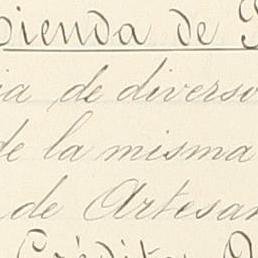 pienda de
ia de diverso
de la misma
de Artesan
Crédito